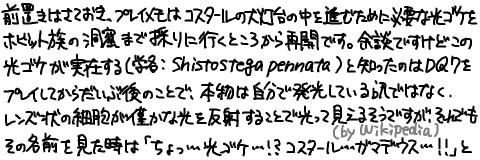 前置きはさておき、プレイメモはコスタールの大灯台の中を進むために必要な光ゴケを
ホビット族の洞窟まで採りに行くところから再開です。余談ですけどこの
光ゴケが実在する(学名:Shistostega pennata)と知ったのはDQ7を
プレイしてからだいぶ後のことで、本物は自分で発光している訳ではなく、
レンズ状の細胞が僅かな光を反射することで光って見えるそうですが、それでも
(by Wikipedia)
その名前を見た時は「ちょっ…光ゴケ…!?コスタール…がマデウス…!!」と